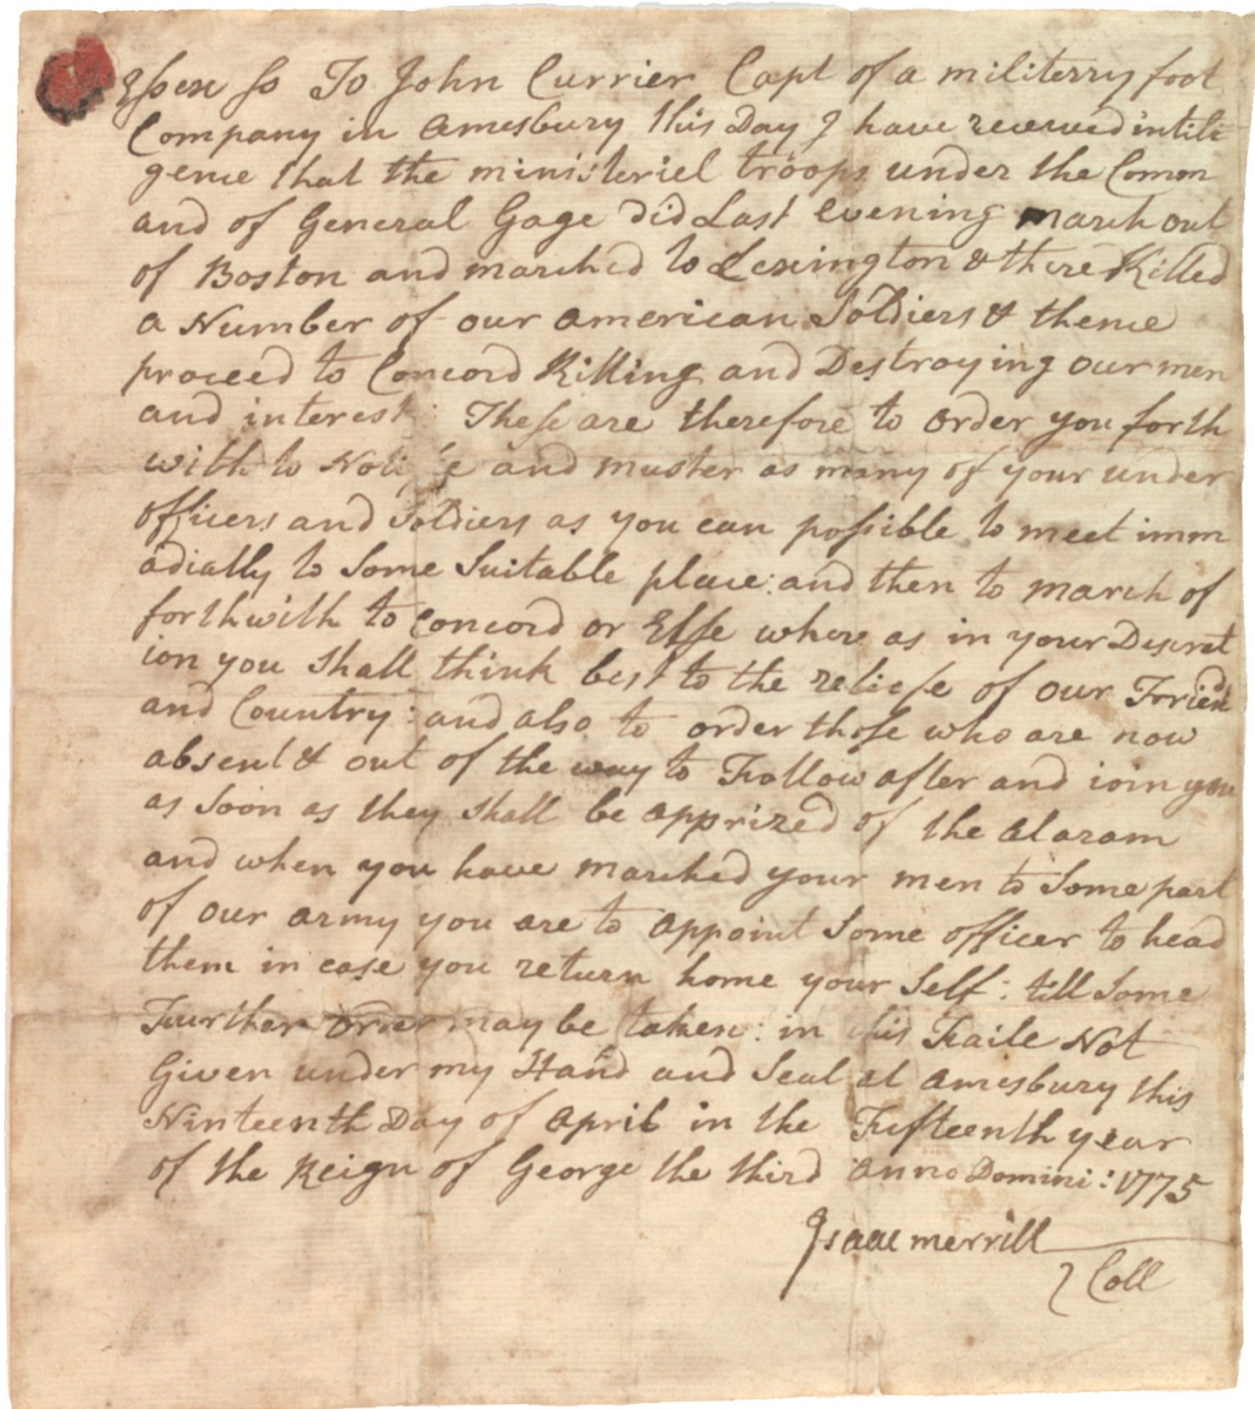 Essex ss To John Currier Capt of a militerry foot
Company in Amesbury this Day I have received intili
gence that the ministeriel troops under the Comm
and of General Gage did Last evening march out
of Boston and marched to Lexington & there Killed
a Number of our American Soldiers & thence
proceed to Concord Killing and Destroying our men
and interest: These are therefore to order you forth
with to Notife and muster as many of your under
officers and Soldiers as you can possible to meet imm
adiatly to Some Suitable place: and then to march of
forthwith to Concord or Else where as in your Descret
ion you shall think best to the reliefe of our Friend
and Country: and also to order those who are now
absent & out of the way to Follow after and ioin you
as Soon as they shall be apprized of the Alaram
and when you have marched your men to Some part
of our army you are to appoint Some officer to head
them in case you return home your Self: till Some
Further order may be taken: in this Faile Not
Given under my Hand and Seal at Amesbury this
Ninteenth Day of April in the Fifteenth year
of the Reign of George the third Anno Domini: 1775
Isaac merrill
Coll